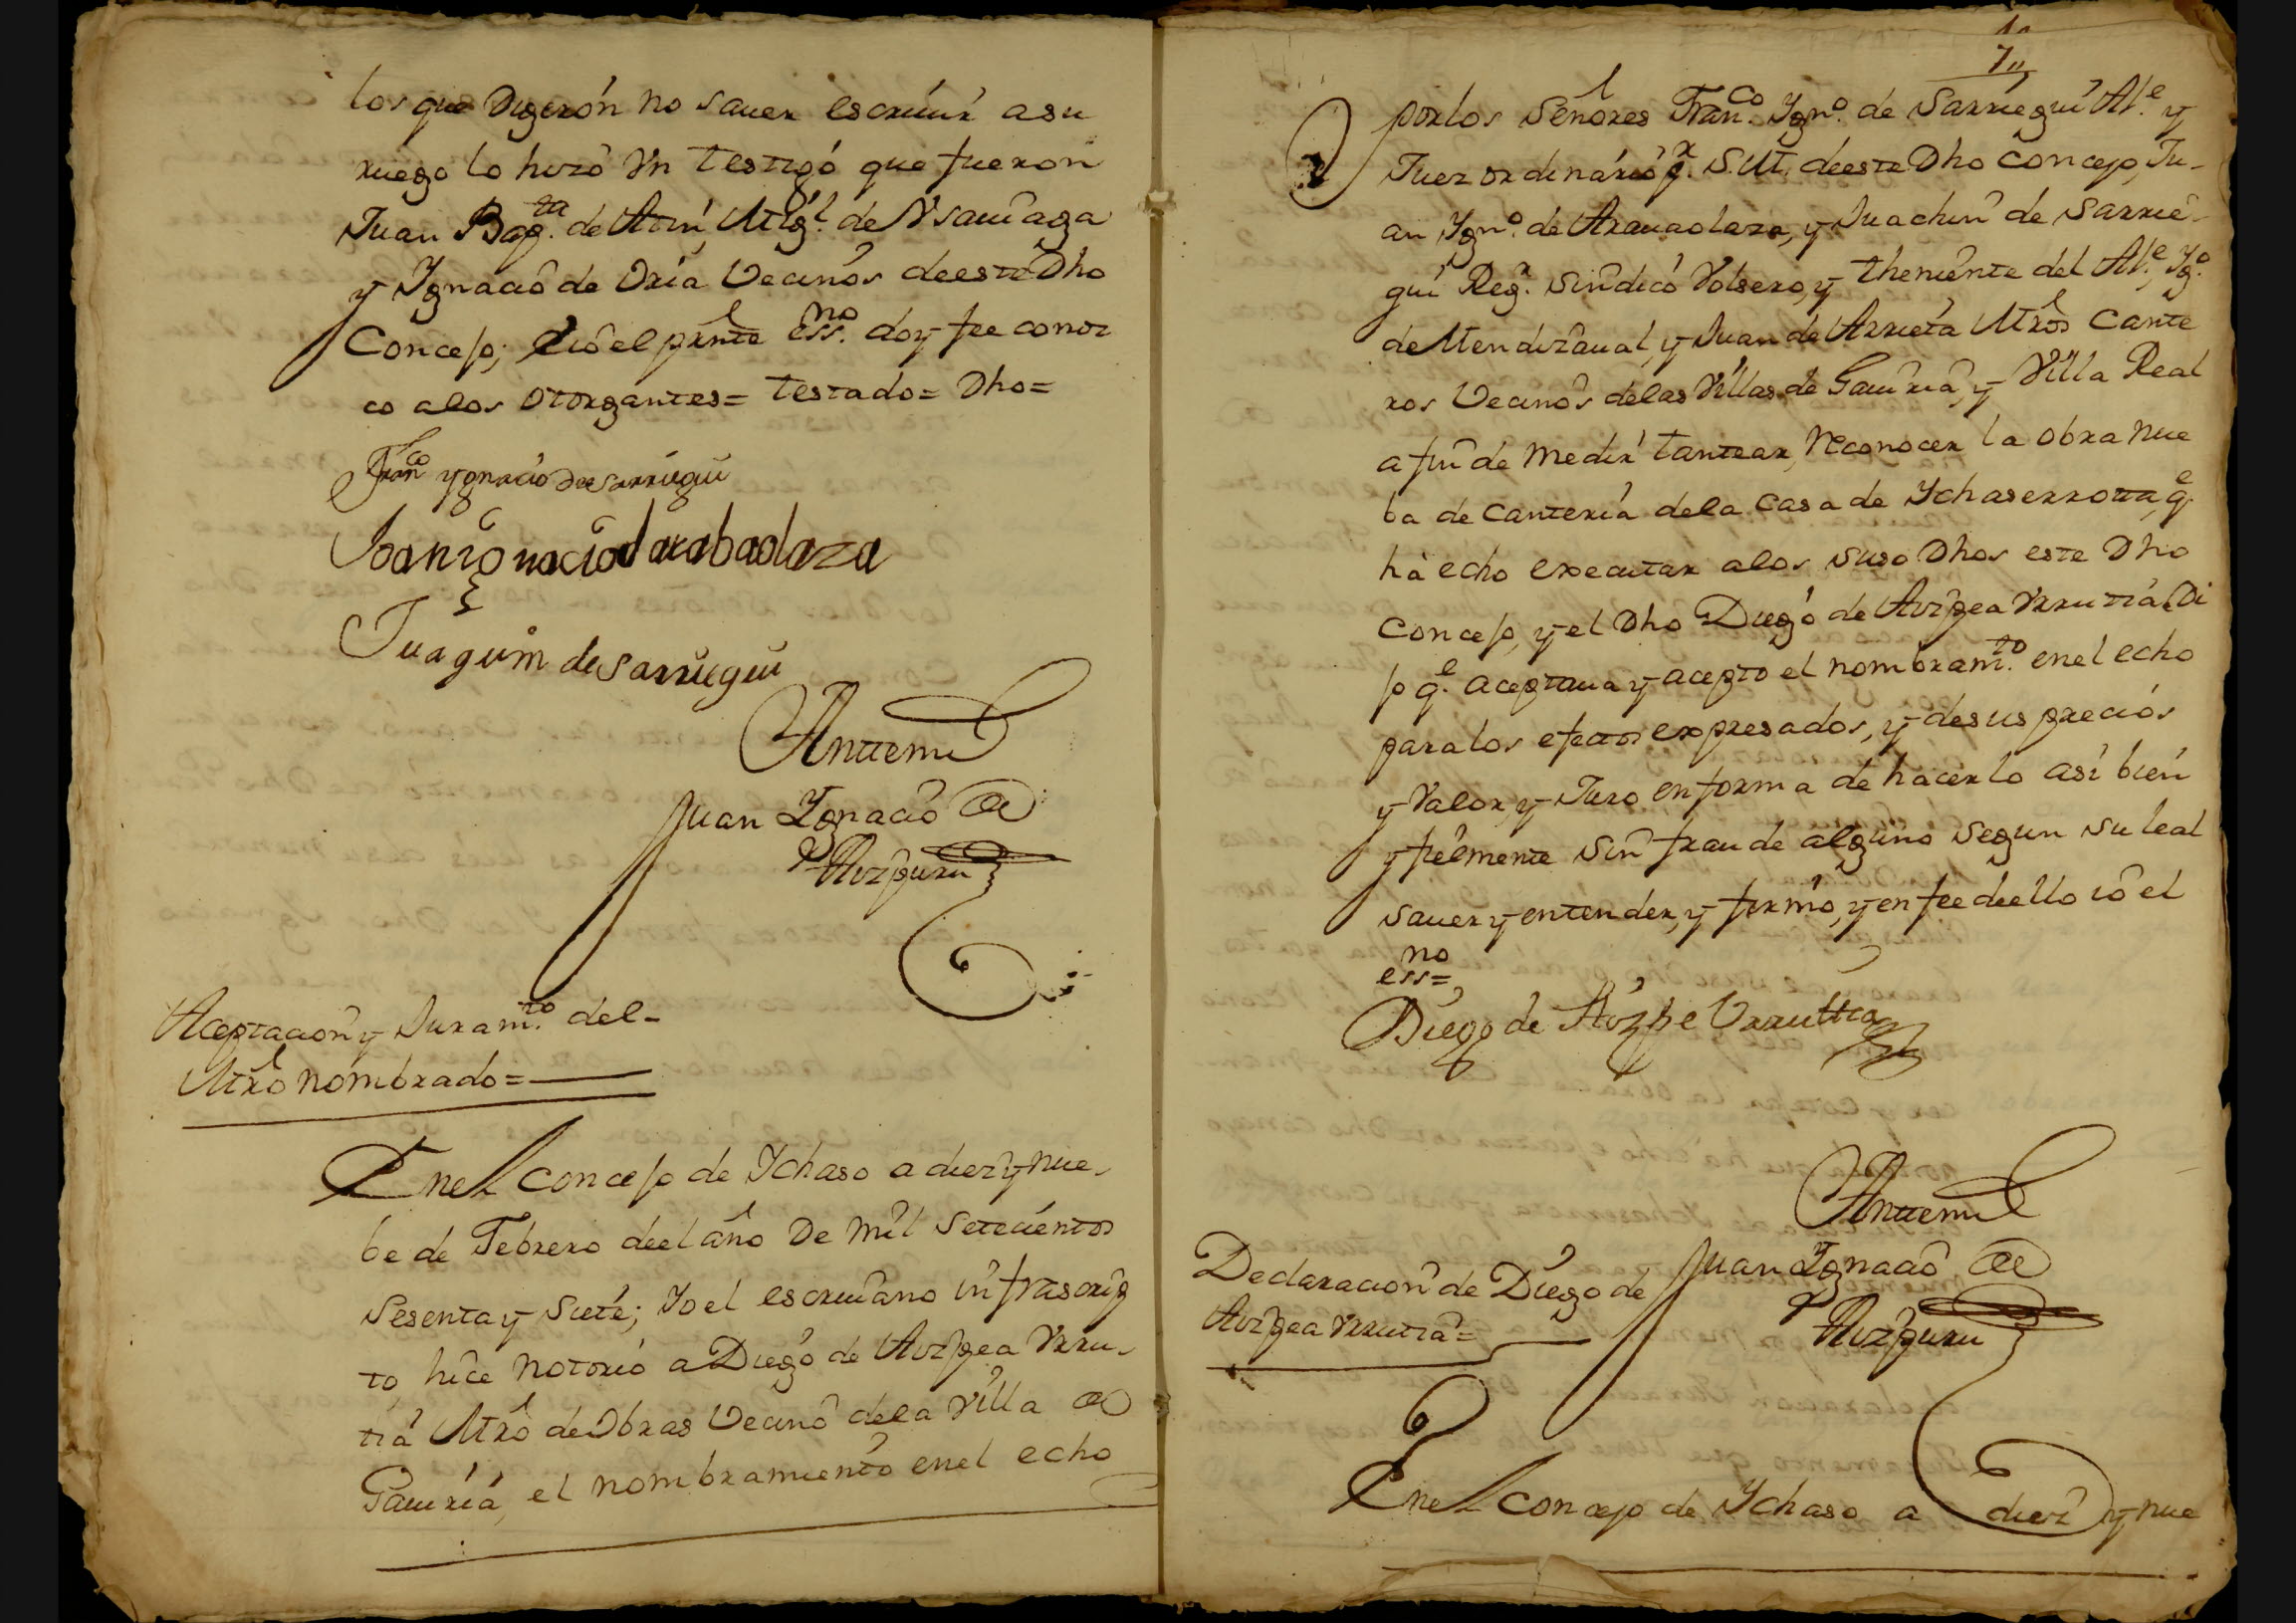 los que Digeron no saver escrivir a su
ruego lo hizo Vn testigo que fueron
Juan Bap.ta de Atin, Mig.l de Ysamaga
y Ygnacio de Oria Vecinos deeste Dho
Concejo; el prnte ess.no doy fee conoz
co alos otorgantes= testado= Dho=
Fran.co Ygnacio De sarriegui
Joan ignacio d arabaolaza
Juaquim de sarriegui
Anttemi
Juan Ygnacio de
Aizpuru
Aceptacion y Juram.to del-
Mro nombrado=
Enel Concejo de Ychaso a diez y nue-
be de Febrero deel año De mil setecientos
sesenta y siete; Yo el escrivano infrascrip
to, hice notorio a Diego de Aizpea Vrru-
tia Mro de Obras Vecino dela Villa de
Gaviria, el nombramiento enel echo
7
por los Señores Fran.co Ygn.o de Sarriegui Al.e y
Juez ordinario p.r S.M. deeste Dho Concejo, Ju-
an Ygn.o de Aravaolaza, y Juachin de Sarrie-
gui Reg.r sindico Volsero, y theniente del Al.e, Yg.o
de Mendizaval, y Juan de Arrieta Mros Cante
ros Vecinos delas Villas de Gaviria, y Villa Real
a fin de medir tantear, Reconocer la obra nue
ba de Canteria dela Casa de Ychaserrotta, q.e
ha echo executar alos suso Dhos este Dho
Concejo, y el Dho Diego de Aizpea Vrrutia Di
jo q.e aceptava y acepto el nombram.to enel echo
para los efectos expresados, y desus precios
y Valor, y Juro en forma de hacerlo asi bien
y fielmente sin fraude alguno segun su leal
saver y entender, y firmo, y en fee deello io el
ess.no=
Diego de Aizpe Urruttia
Anttemi
Juan Ygnacio de
Aizpuru
Declaracion de Diego de
Aizpea Vrrutia=
Enel Concejo de Ychaso a diez y nue